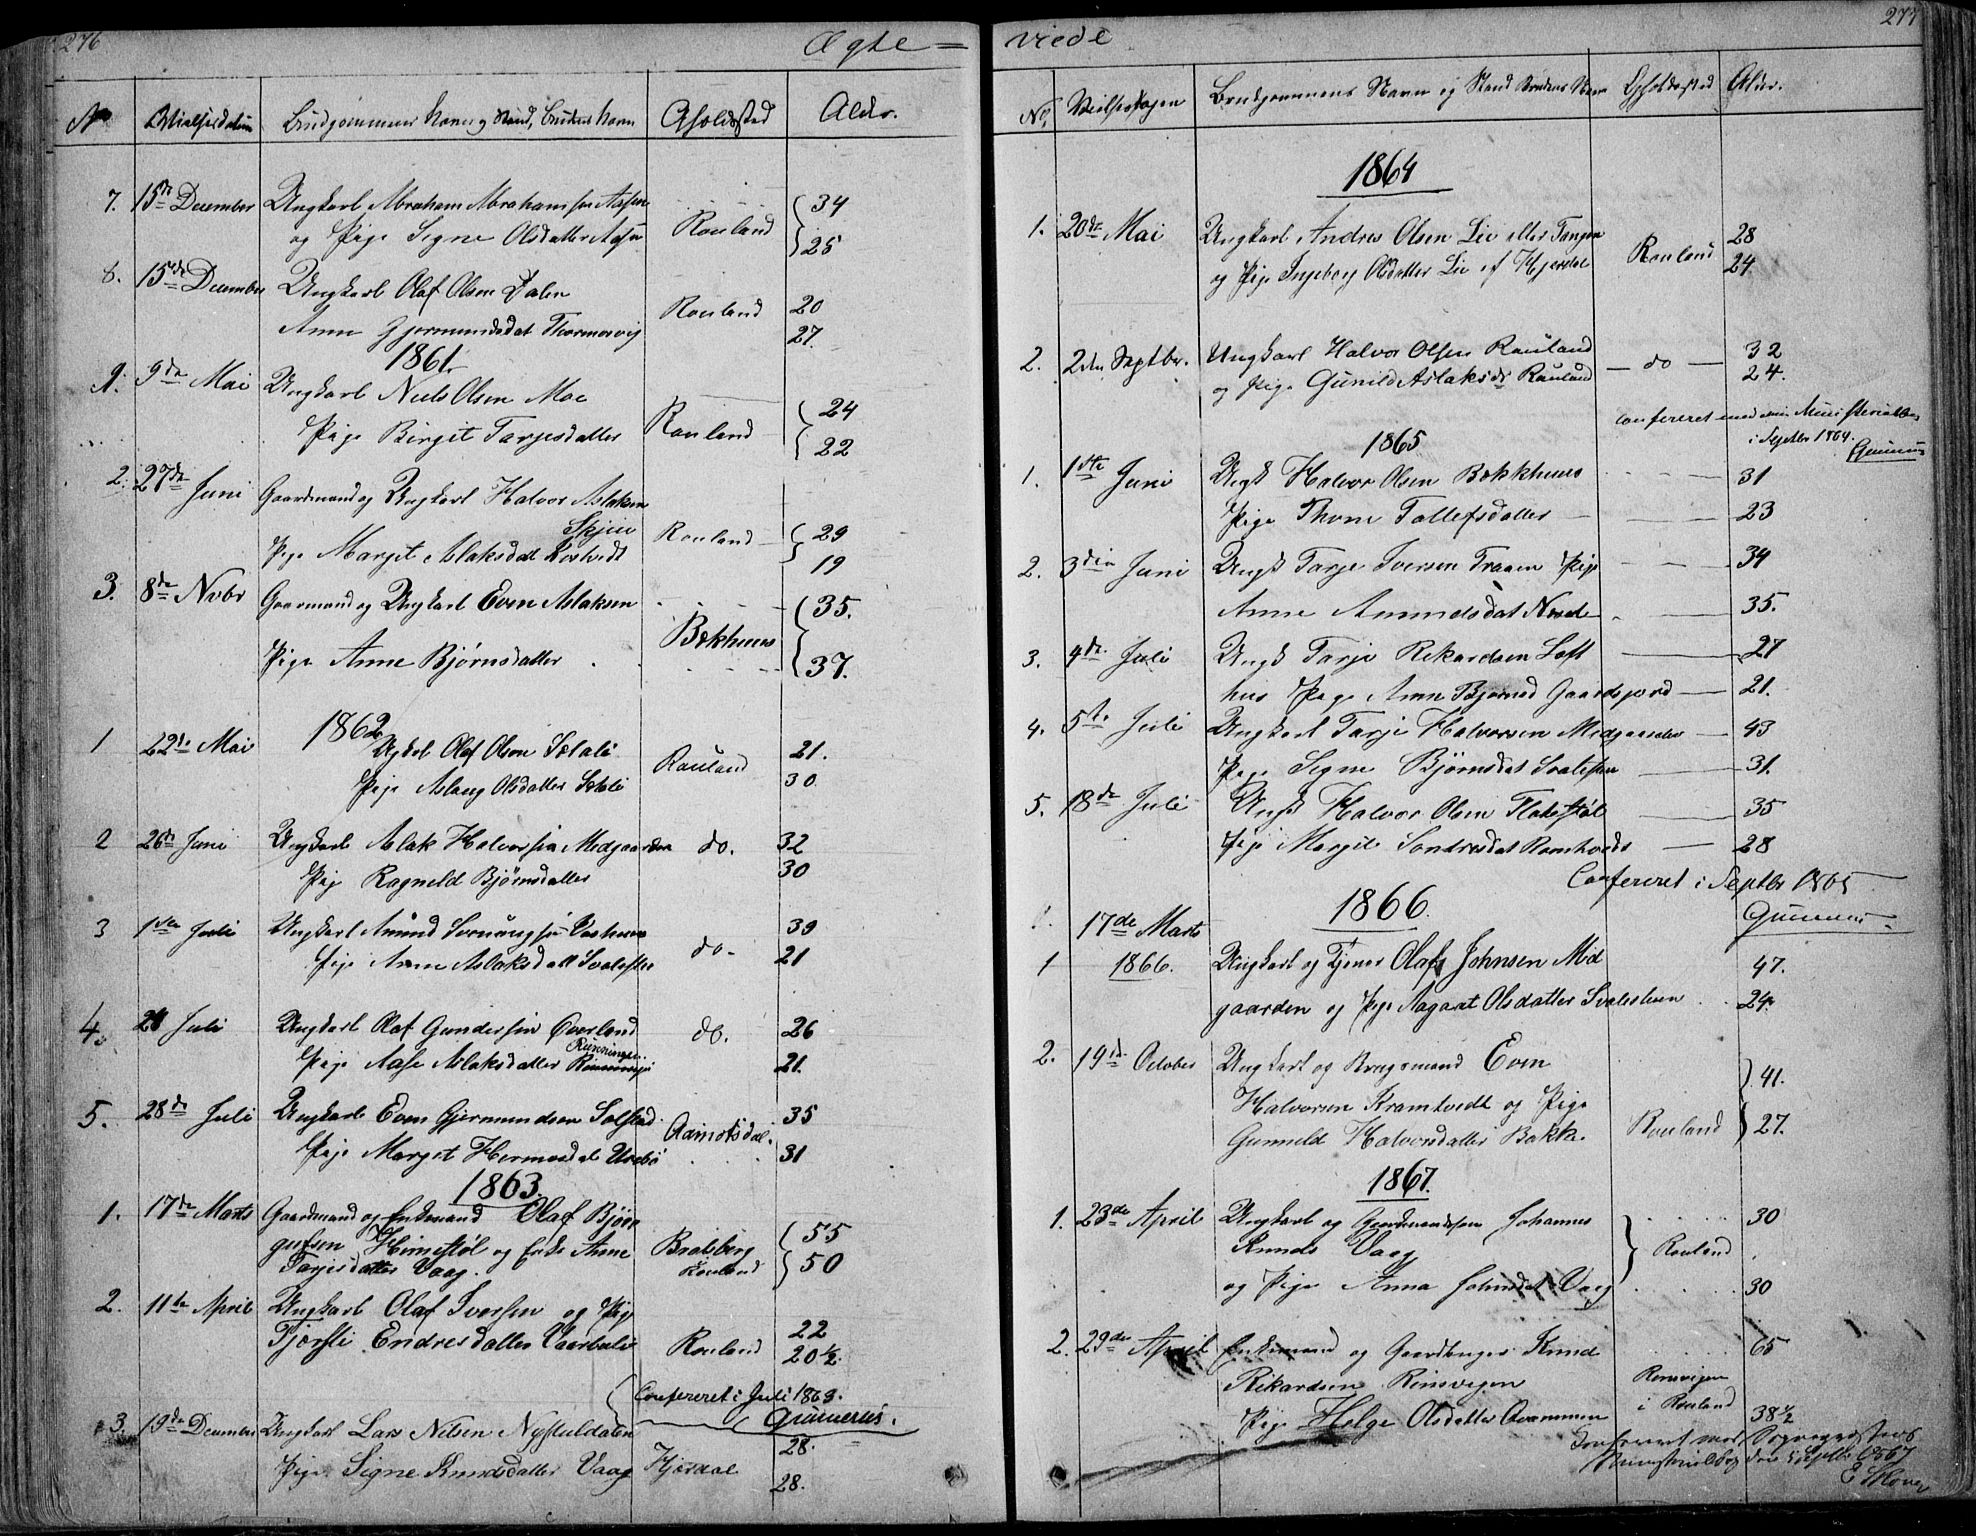 276
Ægte =
No Vielsesdatum Brudgommens Navn og Stand, Brudens Navn Opholdssted Alder.
7. 15de December Ungkarl Abraham Abrahamsen Aasen 34
og Pige Signe Olsdatter Aasen Rouland 25
8. 15de December Ungkarl Olaf Olsen Dalen 20
Anne Gjermundsdat Thormosvig Rouland 27.
1861.
1. 9de Mai Ungkarl Niels Olsen Moe 24
Pige Birgit Tarjesdatter Rouland 22
2. 27de Juni Gaardmand og Ungkarl Halvor Aslaksen
Skjeie Rouland 29
Pige Margit Aslaksdatt Kostvedt 19
3. 8de Novbr Gaarmand og Ungkarl Even Aslaksen 35.
Bekhuus
Pige Anne Bjørnsdatter 37.
1862
1 22de Mai Ugkrl Olaf Olsen Sætali 21.
Pige Aslaug Olsdatter Sætali Rauland 30
2 26de Juni Ungkarl Aslak Halvorsen Midgaarden do. 32
Pige Ragneld Bjørnsdatter 30
3 1ste Juli Ungkarl Amund Svenungsen Vashuus 39
Pige Anne Aslaksdatt Svalesten do. 21
4. 21 Juli Ungkarl Olaf Gundersen Øverland do. 26
Runningen
Pige Aase Aslaksdatter 21.
5. 28de Juli Ungkarl Even Gjermundsen Solstad 35
Pige Margit Hermosdat Aamotsdal. 31
1863.
1. 17de Marts Gaardmand og Enkemand Olaf Bjør
gufsen Himestøl og Enke Anne Bratsberg 55
Tarjesdatter Vaag. Rouland 50
2. 11te April Ungkarl Olaf Iversen og Pige
Tjorfti Endresdatter Vaarbuli Rouland 22
20 1/2.
Confereret i Juli 1863.
Gunnerus.
3. 19de December Ungkarl Lars Nilsen Nystuldalen 28.
Pige Signe Knudsdatter Vaag Hjerdal 28.
277
viede
No. Vielsesdagen Brudgommens Navn og Stand Brudens Navn Opholdssted Alder.
1864
1. 20de Mai Ungkarl Andres Olsen Lie eller Tangen 28
og Pige Ingeborg Olsdatter Lie af Hjerdal Rouland 24
2. 2den Septbr. Ungkarl Halvor Olsen Rauland 32
og Pige Gunild Aslaksdr Rauland — do — 24.
Confereret med Ministerialbo
i Septbr 1864.
Gunnerus
1865
1. 1ste Juni Ungk Halvor Olsen Bekkhuus 31
Pige Thone Tollefsdatter 23
2. 3die Juni Ungk Tarje Iversen Traaen Pige 34
Anne Amundsdat 35.
3. 4de Juli Ungk Tarje Rikardsen Loft 27
hus Pige Anne Bjørnsd Gaardsjord 21.
4. 5te Juli Ungkarl Tarje Halvorsen Midgaarden 43
Pige Signe Bjørnsdat Svalesten 31.
5. 18de Juli Ungk Halvor Olsen Flatestøl 35
Pige Margit Sondresdat Romtvedt 28
Confereret i Septbr 1865
Gunnerus
1866.
17de Marts
1 1866. Ungkarl og Tjener Olaf Johnsen Mid 47.
gaarden og Pige Aagaat Olsdatter Svalesteen 24.
2. 19de October Ungkarl og Brugsmand Even 41.
Halvorsen Kromtvedt og Pige
Gunneld Halvorsdatter Bakk. Rouland 27.
1867.
1. 23de April Ungkarl og Gaardmandssøn Johannes 30
Knuds Vaag Rouland
og Pige Anna Johnsdat Vaag 30
2. 29de April Enkemand og Gaardbruger Knud 65
Rikardsen Rinsvigen Rinsvigen
i Rouland
Pige Helge Olsdatter Qvammen 38 1/2
Confereret med Sognepræstens
Ministerialbog den Septbr 1867
E